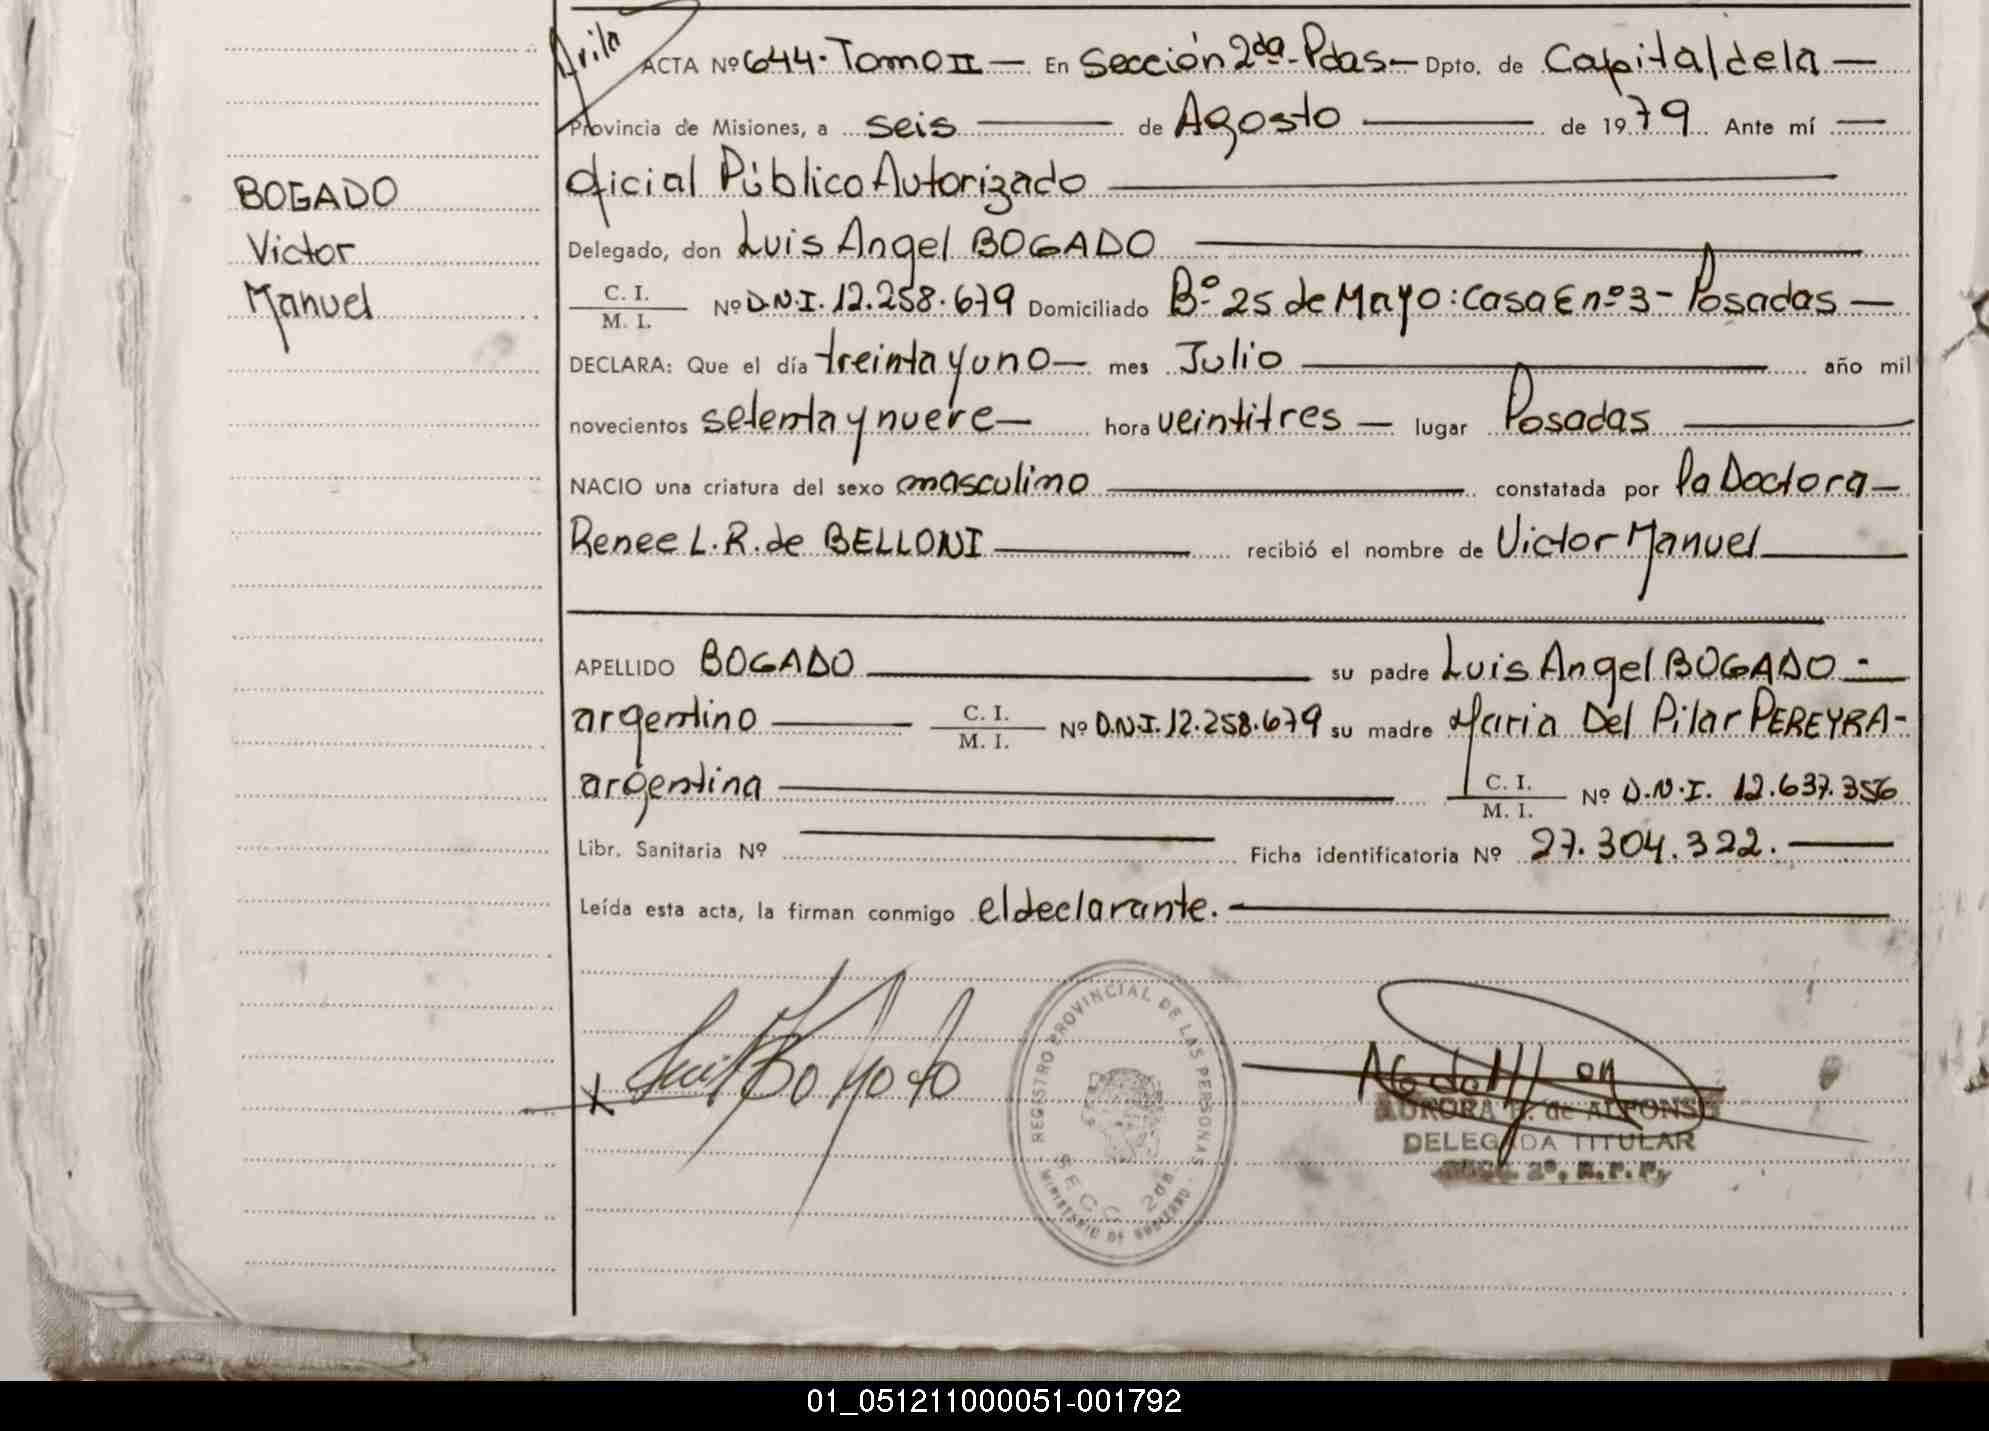 Avila
ACTA Nº 644. Tomo II — En Sección 2da - Pdas — Dpto. de Capital de la —
Provincia de Misiones, a seis — de Agosto — de 1979 Ante mí —
BOGADO
Victor
Manuel
Oficial Público Autorizado —
Delegado, don Luis Angel BOGADO —
C. I.
M. I. Nº D.N.I. 12.258.679 Domiciliado Bº 25 de Mayo: Casa E nº 3 - Posadas —
DECLARA: Que el día treinta y uno — mes Julio — año mil
novecientos setenta y nueve — hora veintitres — lugar Posadas —
NACIO una criatura del sexo masculino — constatada por la Doctora —
Renee L. R. de BELLONI — recibió el nombre de Victor Manuel —
APELLIDO BOGADO — su padre Luis Angel BOGADO -
argentino — C. I.
M. I. Nº D.N.I. 12.258.679 su madre Maria Del Pilar PEREYRA -
argentina — C. I.
M. I. Nº D.N.I. 12.637.356
Libr. Sanitaria Nº — Ficha identificatoria Nº 27.304.322. —
Leída esta acta, la firman conmigo el declarante. —
REGISTRO PROVINCIAL DE LAS PERSONAS
SECC. 2da
MINISTERIO DE GOBIERNO
AURORA de ALFONSO
DELEGADA TITULAR
SECC. 2º. R.P.P.
01_051211000051-001792